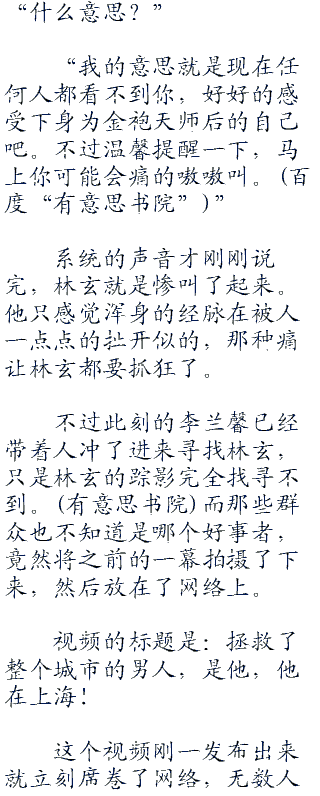 “什么意思？”
“我的意思就是现在任
何人都看不到你，好好的感
受下身为金袍天师后的自己
吧。不过温馨提醒一下，马
上你可能会痛的嗷嗷叫。(百
度“有意思书院”)”
系统的声音才刚刚说
完，林玄就是惨叫了起来。
他只感觉浑身的经脉在被人
一点点的扯开似的，那种痛
让林玄都要抓狂了。
不过此刻的李兰馨已经
带着人冲了进来寻找林玄，
只是林玄的踪影完全找寻不
到。(有意思书院)而那些群
众也不知道是哪个好事者，
竟然将之前的一幕拍摄了下
来，然后放在了网络上。
视频的标题是：拯救了
整个城市的男人，是他，他
在上海！
这个视频刚一发布出来
就立刻席卷了网络，无数人